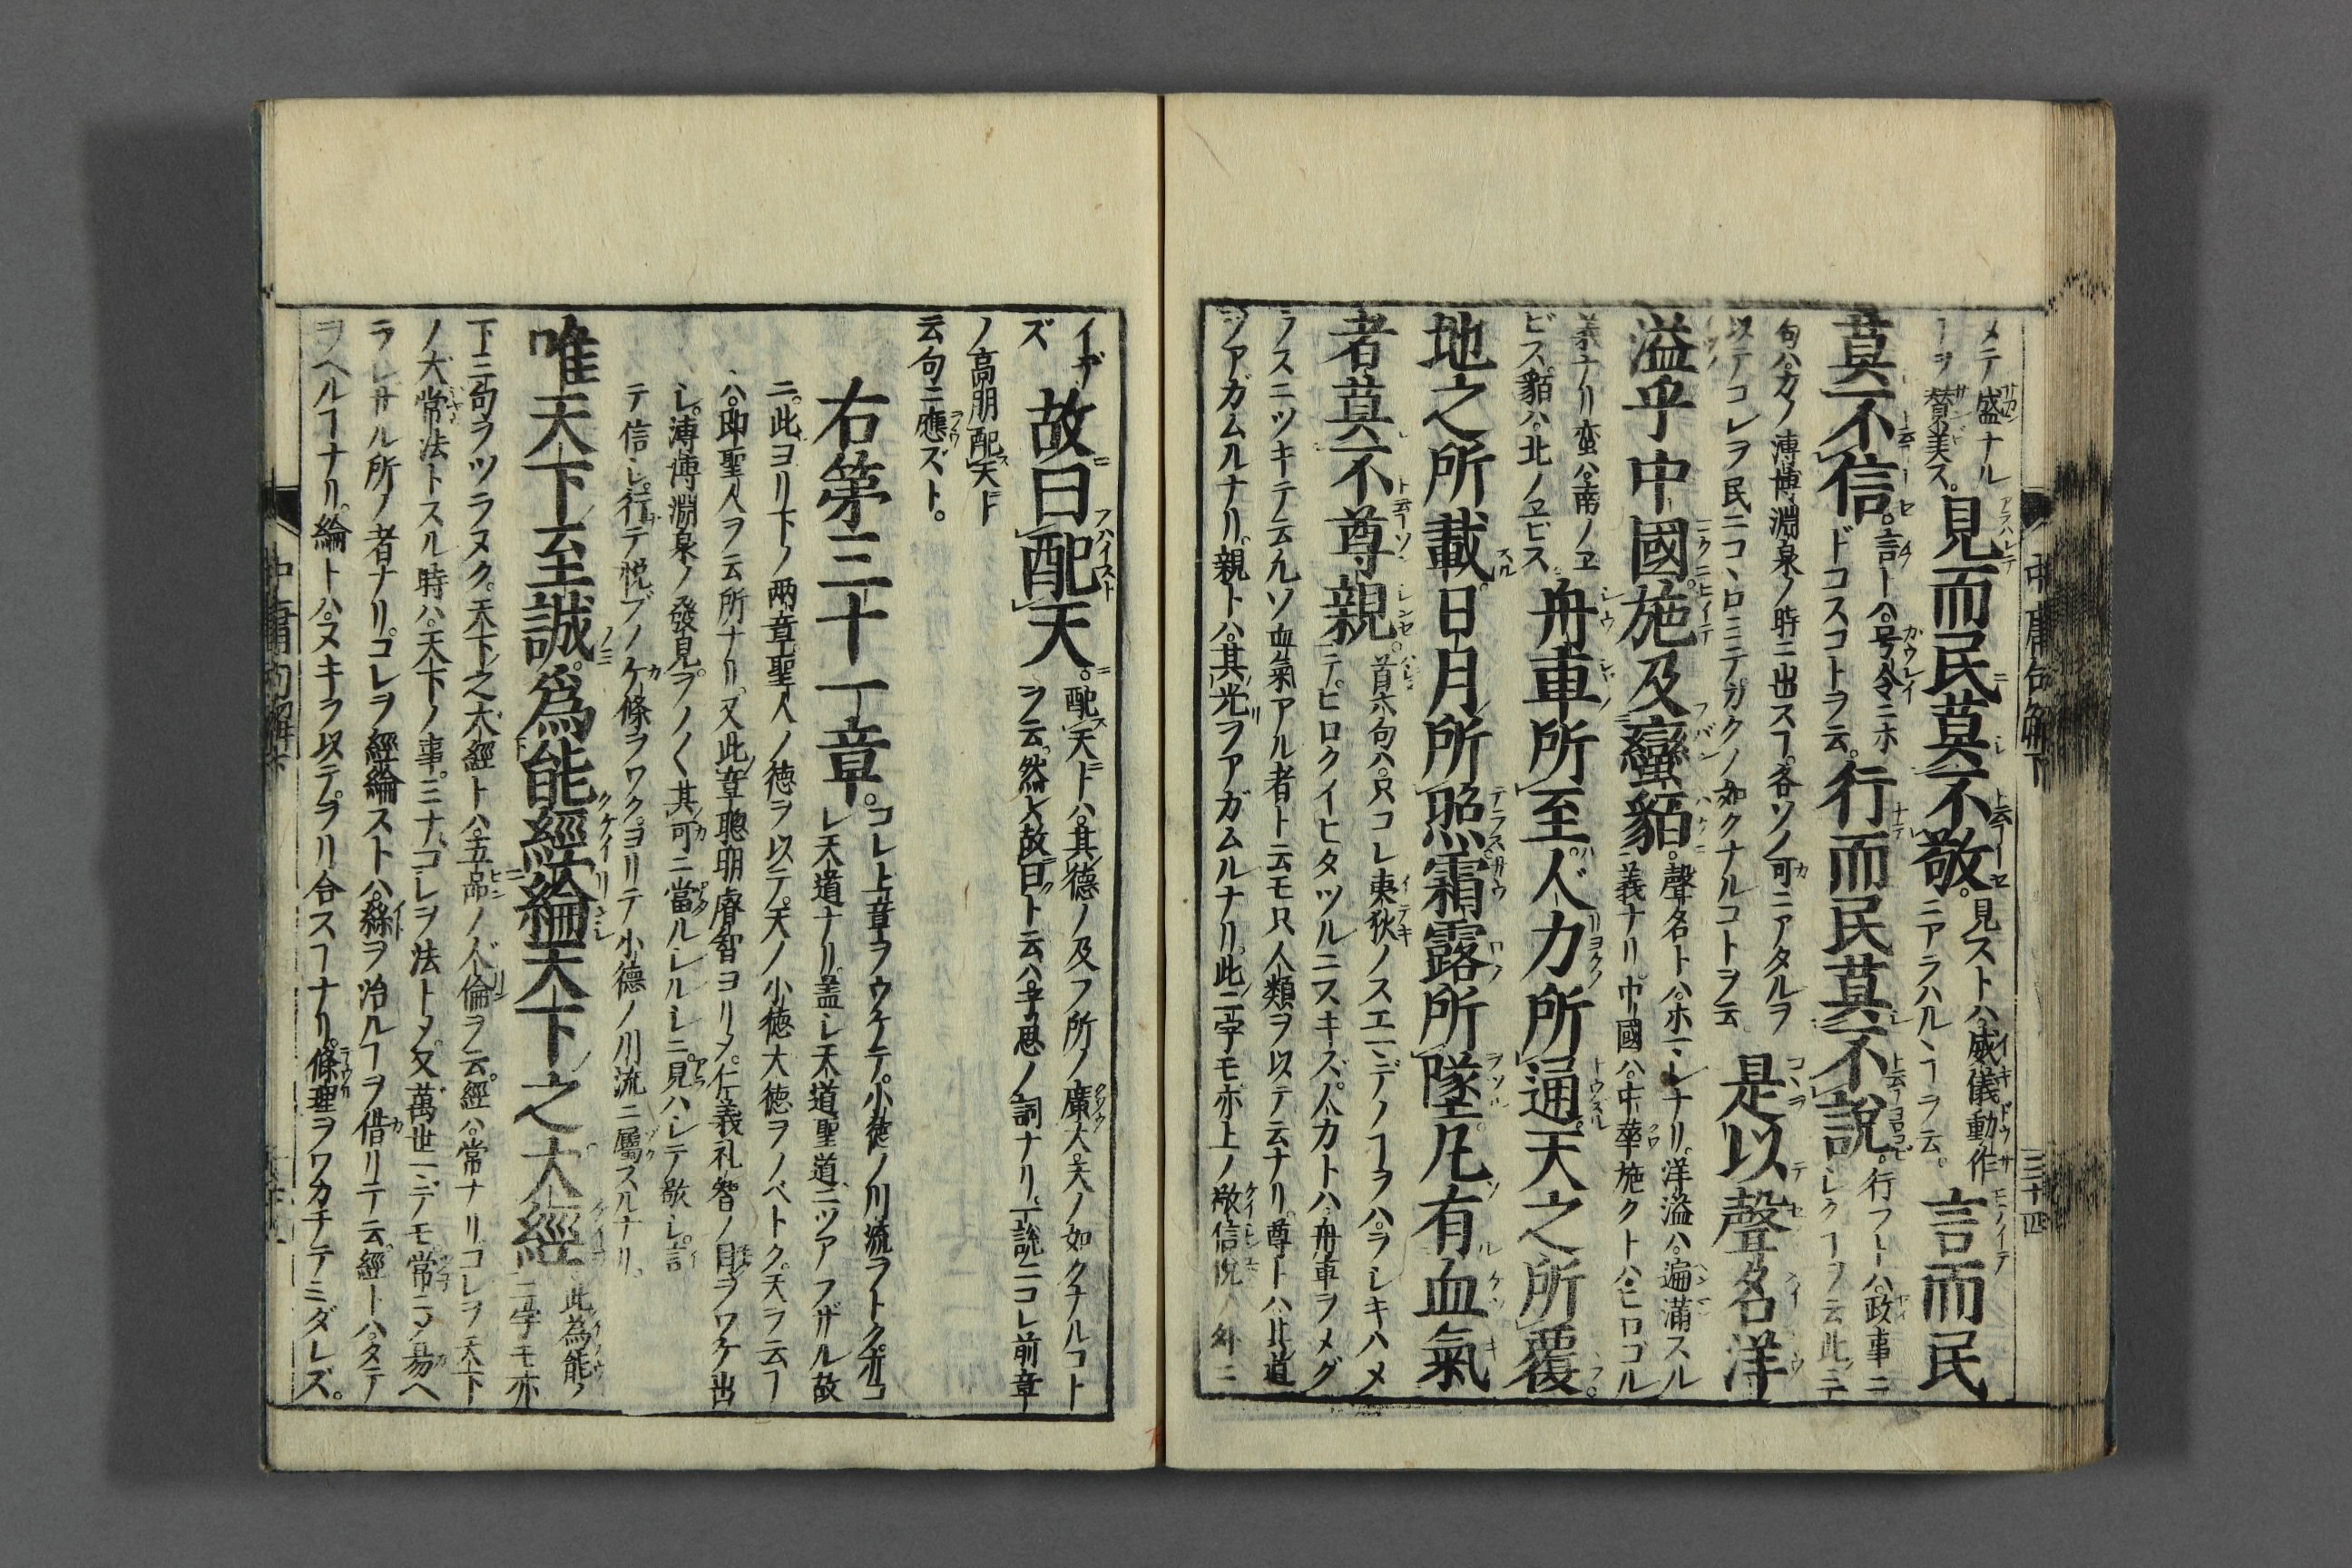 メテ盛ナル
ーヲ賛美ス。見而民莫不敬。見ストハ。威儀動作
ニアラハルヽヿヲ云。言而民
莫不信。言トハ。号令ニホ
ドコスコトヲ云。行而民莫不說。行フトハ。政事ニ
シクヿヲ云此三
句ハ。カノ溥博淵泉ノ時ニ出スヿ。各ソノ可ニアタルヲ
以テコレヲ民ニコヽロミテ。カクノ如クナルコトヲ云 是以聲名洋
溢乎中國施及蠻貊。聲名トハ。ホマレナリ。洋溢ハ。遍滿スル
義ナリ。中國ハ。中華 施クトハ。ヒロゴル
義ナリ 蛮ハ。南ノヱ
ビス。貊ハ。北ノヱビス 舟車所至。人力所通。天之所覆。
地之所載。日月所照。霜露所墜。凡有血氣
者莫不尊親。首六句ハ。只コレ東狄ノスエマデノヿヲハヲレキハメ
テ。ヒロクイヒタツルニスキズ。人力トハ。舟車ヲメグ
ラスニツキテ云ルソ 血氣アル者ト云モ只人類ヲ以テ云ナリ。尊トハ。其道
ヲアガムルナリ。親トハ。其光ヲアガムルナリ。此二字モ亦上ノ敬信說ノ外ニ
イデ
ズ 故曰配天。配天トハ。其德ノ及フ所ノ廣大。天ノ如クナルコト
ヲ云。然レ故曰ト云ハ。子思ノ詞ナリ。一說ニコレ前章
ノ高明配天ト
云句ニ應ズト。
右第三十一章。コレ上章ヲウケテ。小德ノ川流ヲトク。亦コ
レ天道ナリ。盖シ天道聖道二ツアラザル故
ニ。此ヨリ下ノ兩章。聖人ノ德ヲ以テ。天ノ小德大德ヲノベトク。天ヲ云ヿ
ハ。即聖人ヲ云所ナリ。又此章聰明睿智ヨリメ。仁義礼智ノ目ヲワケ出
シ。溥博淵泉ノ發見ヲノ〱其可ニ當ルシルシニ。見ハレテ敬シ。言
テ信シ。行テ悅ブノケ條ヲワク。ヨリテ小德ノ川流ニ屬スルナリ。
唯天下至誠。爲能經綸天下之大經 此為能ノ
二字モ亦
下三句ヲツラヌク。天下之大經トハ。五品ノ人倫ヲ云。經ハ。常ナリ コレヲ天下
ノ大常法トスル時ハ。天下ノ事。ミナコレヲ法トメ。又萬世マデモ常ニメ易ヘ
ラレザル所ノ者ナリ。コレヲ經綸ストハ。絲ヲ治ルヿヲ借リテ云。經トハ。タテ
ヲヘルヿナリ。綸トハ。ヌキヲ以テ。ヲリ合スヿナリ。條理ヲワカチテミダレズ。
中庸句解下
三十四